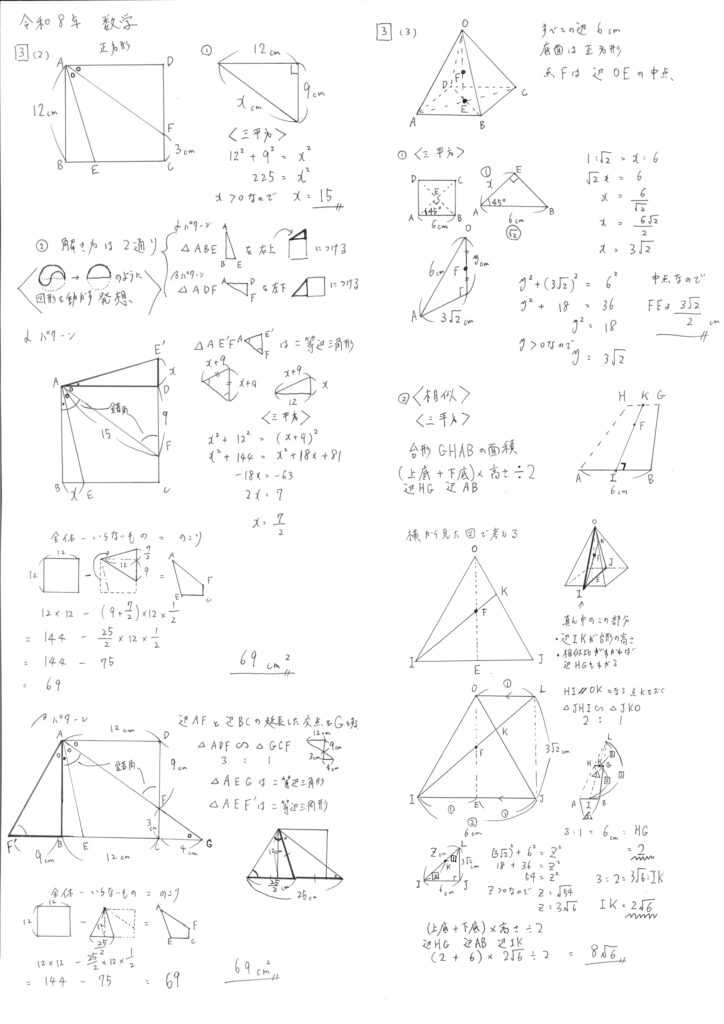 令和8年 数学
3 (2)
正方形
A
D
12cm
F
3cm
B
E
C
①
12cm
9cm
xcm
〈三平方〉
12² + 9² = x²
225 = x²
x>0なので x = 15
② 解き方は2通り
のように
図形を動かす発想
αパターン
△ABE
A
B E
を右上
につける
βパターン
△ADF
A D
F
を左下
につける
αパターン
E'
x
A
D
9
錯角
15
F
B
x
E
C
△AE'F
A
E'
F
は二等辺三角形
x+9
x+9
x+9
x
12
〈三平方〉
x² + 12² = (x+9)²
x² + 144 = x² + 18x + 81
-18x = -63
2x = 7
x = 7/2
全体 - いらないもの = のこり
12
12
-
12
7/2
9
=
A
F
E
C
12×12 - (9+7/2)×12×1/2
= 144 - 25/2 × 12 × 1/2
= 144 - 75
= 69
69 cm²
βパターン
12cm
A
D
錯角
9cm
F
3cm
F'
B
E
C
G
9cm
12cm
4cm
辺AFと辺BCの延長した交点をGとする
△ADF ∽ △GCF
3 : 1
12cm
9cm
3cm
4cm
△AEGは二等辺三角形
△AEF'は二等辺三角形
25/2 cm
25cm
全体 - いらないもの = のこり
12
12
-
12
25/2
=
A
F
E
C
12×12 - 25/2×12×1/2
= 144 - 75 = 69
69 cm²
3 (3)
O
F
D
C
E
A
B
すべての辺 6cm
底面は正方形
点Fは辺OEの中点
① 〈三平方〉
D
C
E
45°
A
B
6cm
①
E
x
45°
A
B
6cm
√2
1:√2 = x:6
√2 x = 6
x = 6/√2
x = 6√2/2
x = 3√2
O
6cm
F
ycm
E
A
3√2 cm
y² + (3√2)² = 6²
y² + 18 = 36
y² = 18
y>0なので
y = 3√2
中点なので
FEは 3√2/2 cm
② 〈相似〉
〈三平方〉
台形GHABの面積
(上底 + 下底) × 高さ ÷ 2
辺HG 辺AB
H K G
F
A
I
B
6cm
横から見た図で考える
O
K
F
I
E
J
O
K
F
J
E
I
↑
真ん中のこの部分
・辺IKが台形の高さ
・相似比がわかれば
辺HGもわかる
O
①
L
K
F
3√2cm
I
①
E
①
J
②
6cm
△JKO
2 : 1
H
K
G
A
I
B
3:1 = 6cm : HG
= 2
L
Zcm
K
3√2cm
I
6cm
J
(3√2)² + 6² = Z²
18 + 36 = Z²
54 = Z²
Z>0なので Z = √54
Z = 3√6
3:2 = 3√6:IK
IK = 2√6
(上底 + 下底) × 高さ ÷ 2
辺HG 辺AB 辺IK
(2 + 6) × 2√6 ÷ 2 = 8√6